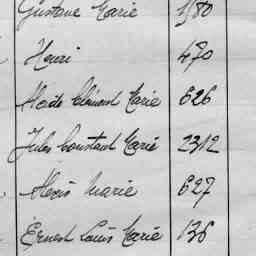 Gustave Marie 1580
Henri 470
Aloïs Clément Marie 626
Jules Constant Marie 2312
Alexis Marie 627
Ernest Louis Marie 136